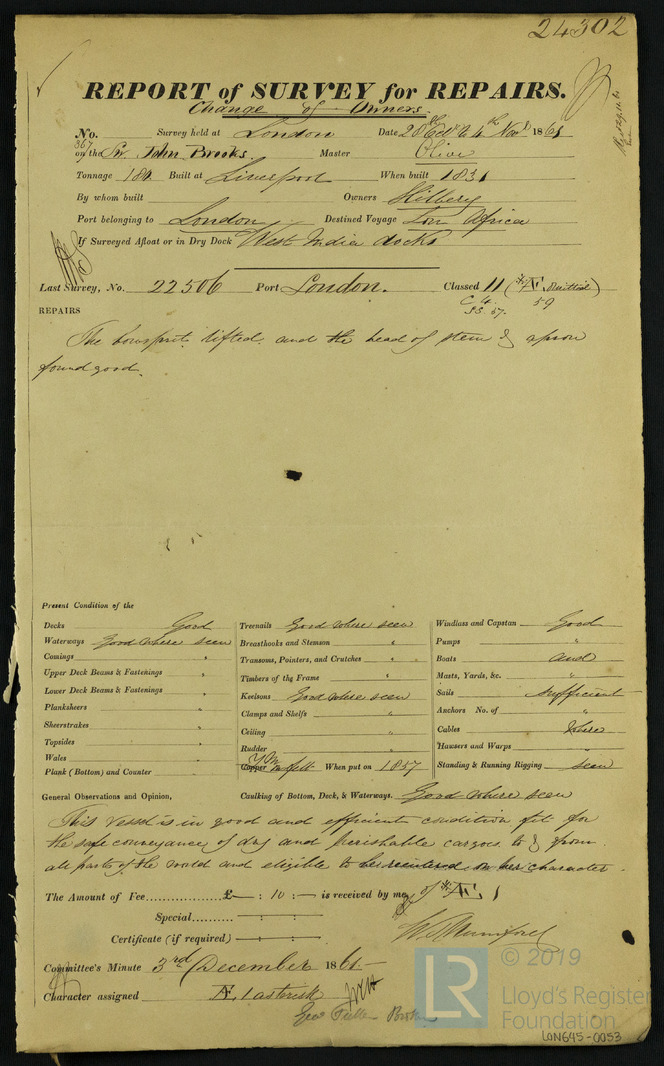 24302
REPORT of SURVEY for REPAIRS.
Change of Owners.
No. 367 Survey held at London Date 28th Octr to 4th Novr 1861
on the Sr. John Brooks. Master Olive
Tonnage 180 Built at Liverpool When built 1831
By whom built Owners Hilbery
Port belonging to London Destined Voyage Africa
If Surveyed Afloat or in Dry Dock West India docks
Last Survey, No. 22506 Port London. Classed 11 (*Æ Omitted)
C 4. 59
S.S. 57.
REPAIRS
The bowsprit lifted and the head of stem & apron
found good.
Present Condition of the
Decks Good
Waterways Good where seen
Comings "
Upper Deck Beams & Fastenings "
Lower Deck Beams & Fastenings "
Planksheers "
Sheerstrakes "
Topsides "
Wales "
Plank (Bottom) and Counter "
Treenails Good where seen
Breasthooks and Stemson "
Transoms, Pointers, and Crutches "
Timbers of the Frame "
Keelsons Good where seen
Clamps and Shelfs "
Ceiling "
Rudder "
Copper Y.M. on felt When put on 1857
Caulking of Bottom, Deck, & Waterways. Good where seen
Windlass and Capstan Good
Pumps "
Boats and
Masts, Yards, &c. "
Sails Sufficient
Anchors No. of "
Cables where
Hawsers and Warps "
Standing & Running Rigging seen
General Observations and Opinion,
This vessel is in good and efficient condition fit for
the safe conveyance of dry and perishable cargoes to & from
all parts of the world and eligible to be reinstated in her character
of *Æ 1
The Amount of Fee £ : 10 : — is received by me,
Special — : — : —
Certificate (if required) — : — : —
W. Mumford
Committee's Minute 3rd December 1861
Character assigned Æ, 1 asterisk
Geo Fuller Broker
© 2019
LR Lloyd's Register
Foundation
LON645-0053